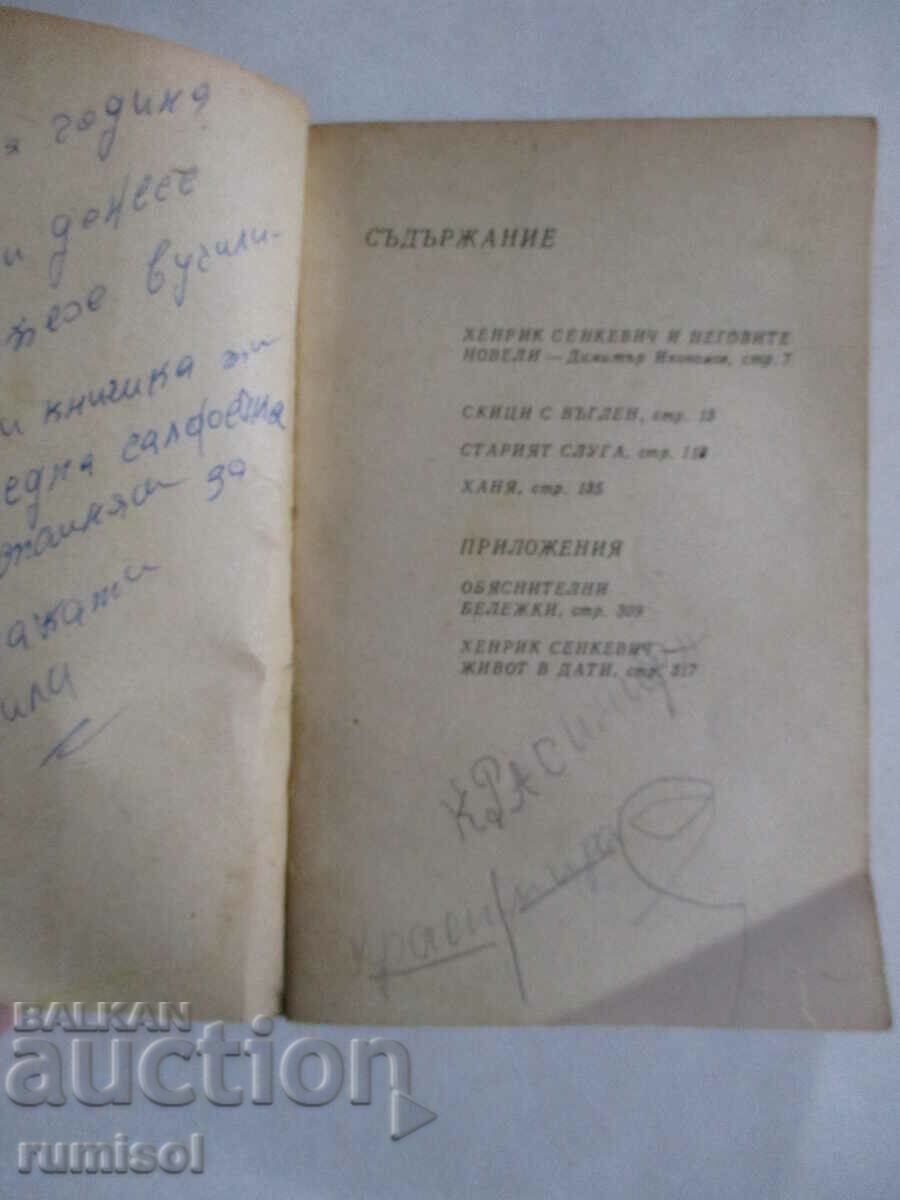 година
и донесе
вучили-
и книжка
една салфетка
за
или
СЪДЪРЖАНИЕ
ХЕНРИК СЕНКЕВИЧ И НЕГОВИТЕ
НОВЕЛИ — Димитър Икономов, стр. 7
СКИЦИ С ВЪГЛЕН, стр. 13
СТАРИЯТ СЛУГА, стр.
ХАНЯ, стр. 135
ПРИЛОЖЕНИЯ
ОБЯСНИТЕЛНИ
БЕЛЕЖКИ, стр. 309
ХЕНРИК СЕНКЕВИЧ —
ЖИВОТ В ДАТИ, стр. 317
КРАСИМИР
BALKAN
auction
rumisol